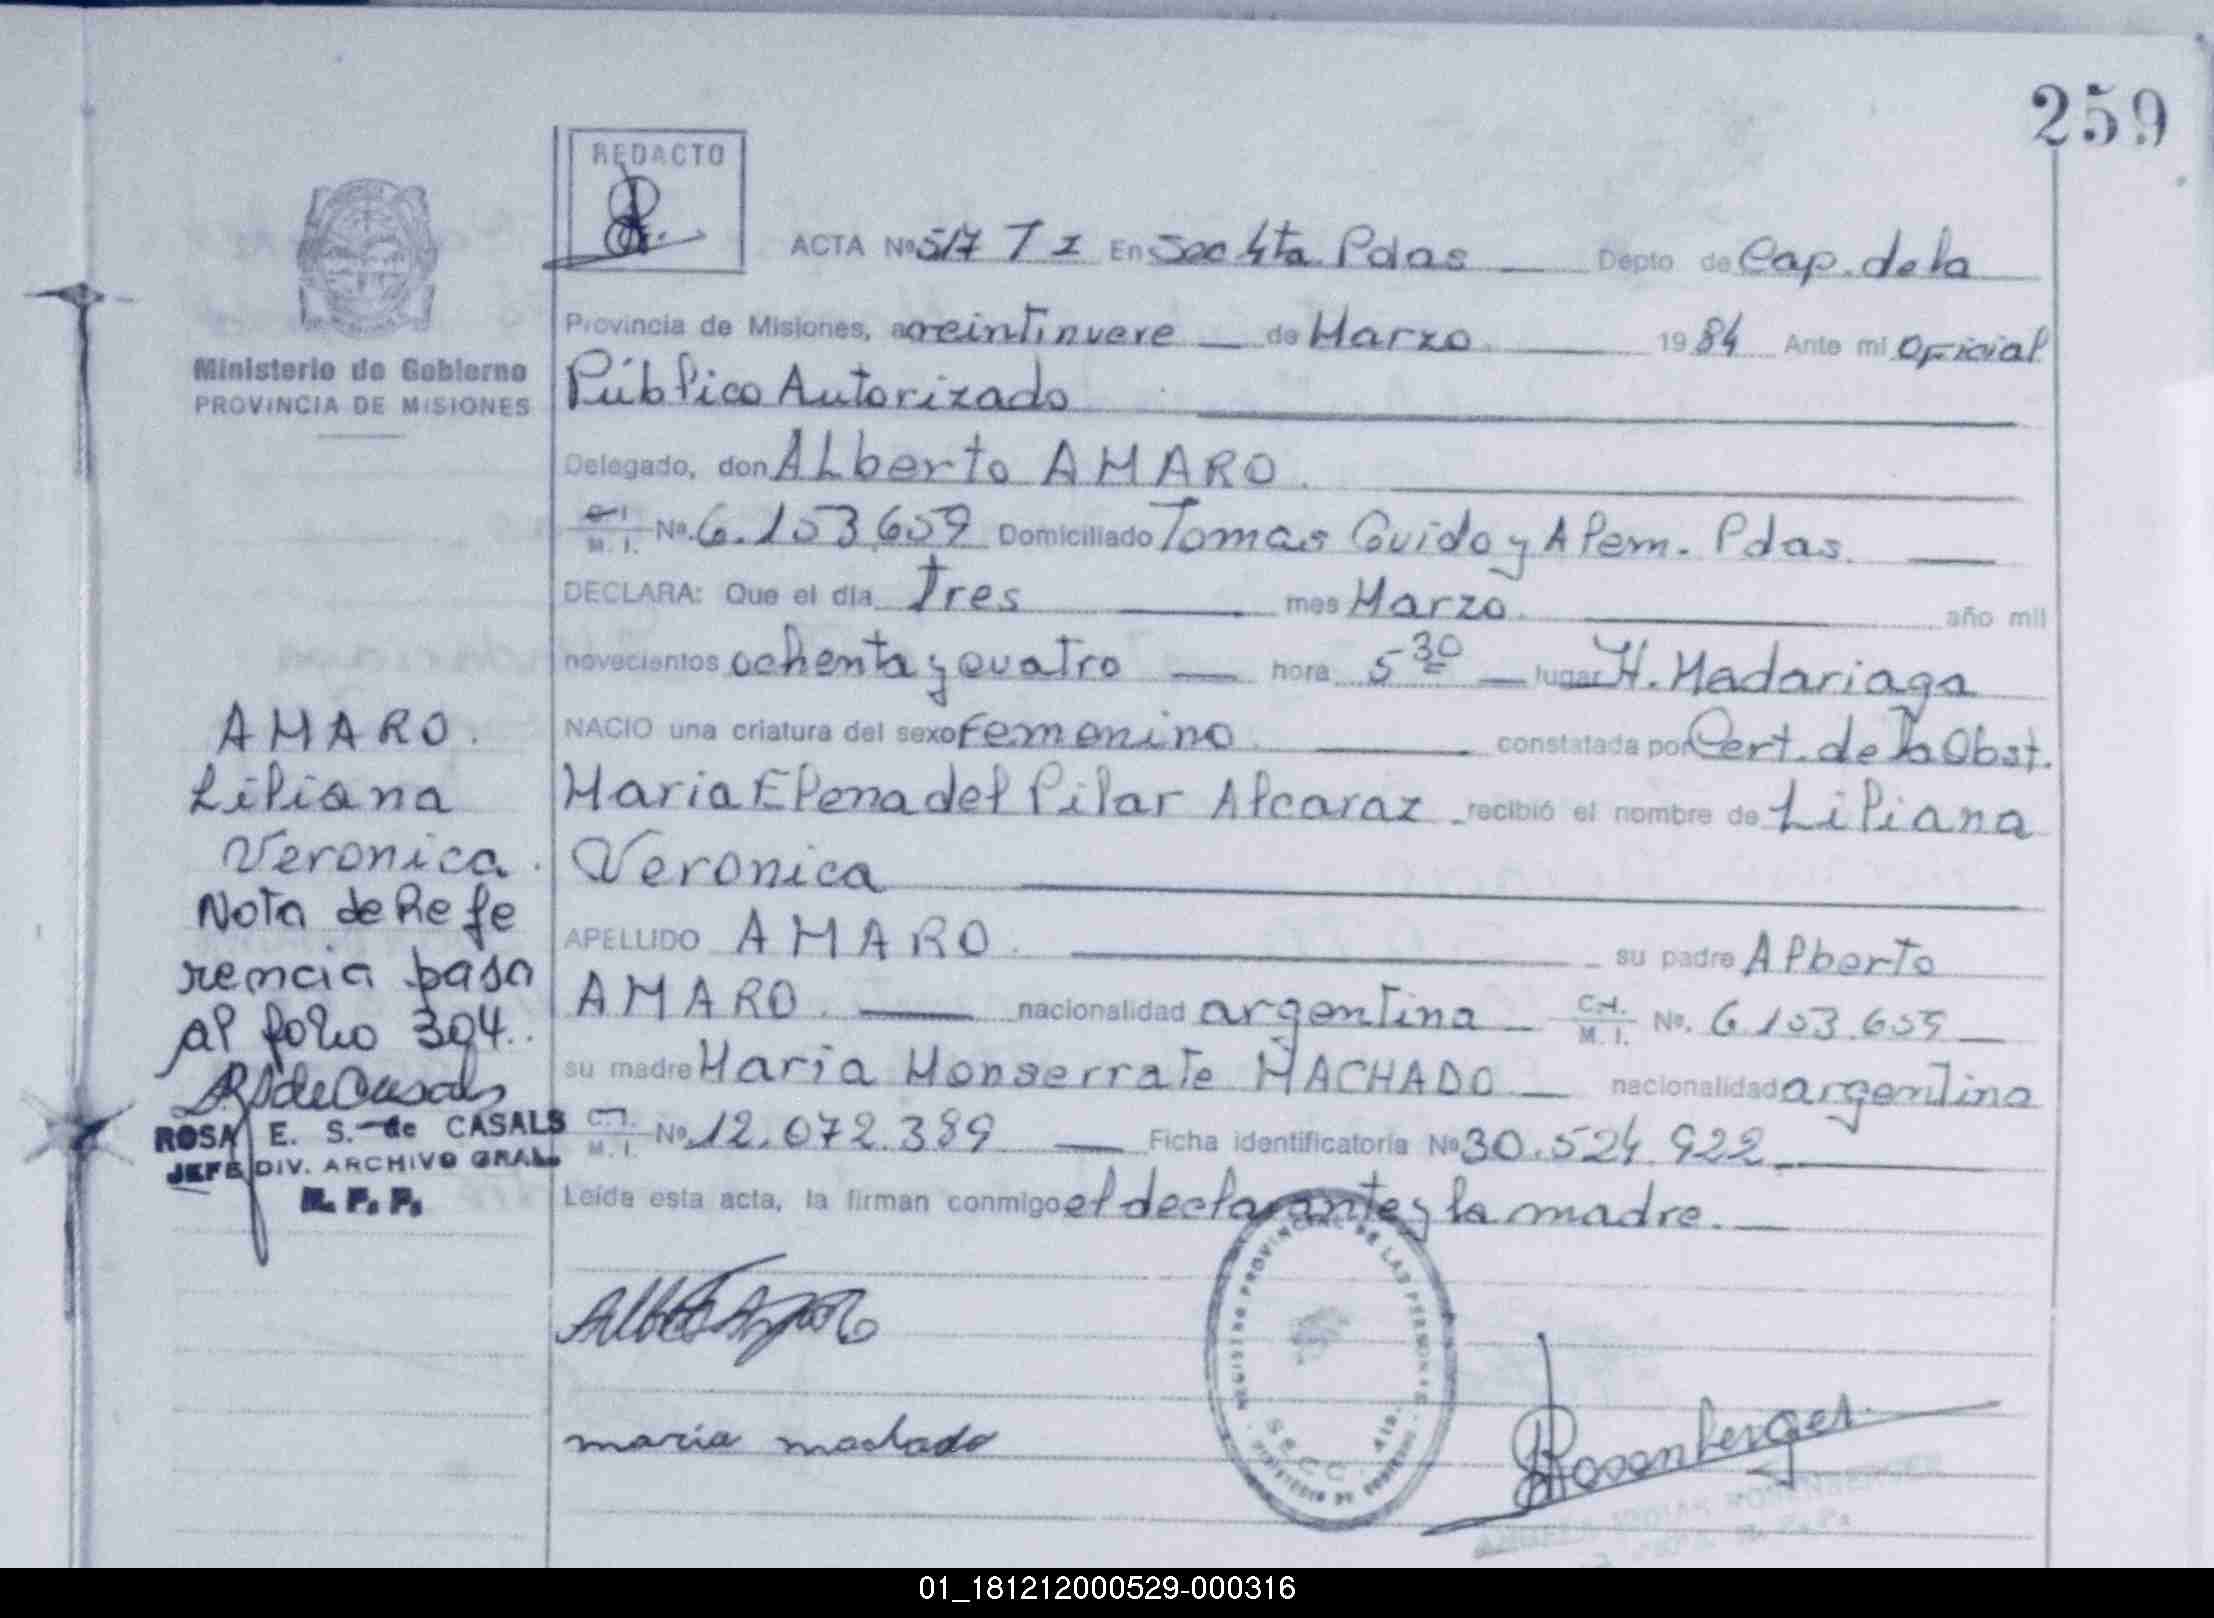 259
REDACTO
ACTA Nº 517 T I En Sec 4ta Pdas Depto de Cap. de la
Provincia de Misiones, a veintinueve de Marzo 1984 Ante mi Oficial
Ministerio de Gobierno
PROVINCIA DE MISIONES
Público Autorizado
Delegado, don Alberto AMARO.
C.I. M.I. Nº. 6.153.659 Domiciliado Tomas Guido y Alem. Pdas.
DECLARA: Que el día tres mes Marzo año mil
novecientos ochenta y cuatro hora 5 30 lugar H. Madariaga
NACIO una criatura del sexo Femenino constatada por Cert. de la Obst.
Maria Elena del Pilar Alcaraz recibió el nombre de Liliana
Veronica
APELLIDO AMARO. su padre Alberto
AMARO. nacionalidad argentina C.I. M.I. Nº. 6.153.659
su madre Maria Monserrate MACHADO nacionalidad argentina
C.I. M.I. Nº 12.072.389 Ficha identificatoria Nº 30.524.922
Leída esta acta, la firman conmigo el declarante y la madre.
AMARO.
Liliana
Veronica.
Nota de Refe
rencia pasa
al folio 304.
ROSA E. S. de CASALS
JEFE DIV. ARCHIVO GRAL.
R. P. P.
maria machado
REGISTRO PROVINCIAL DE LAS PERSONAS
SECC. 4ta.
MINISTERIO DE GOBIERNO
Rosenberger
01_181212000529-000316